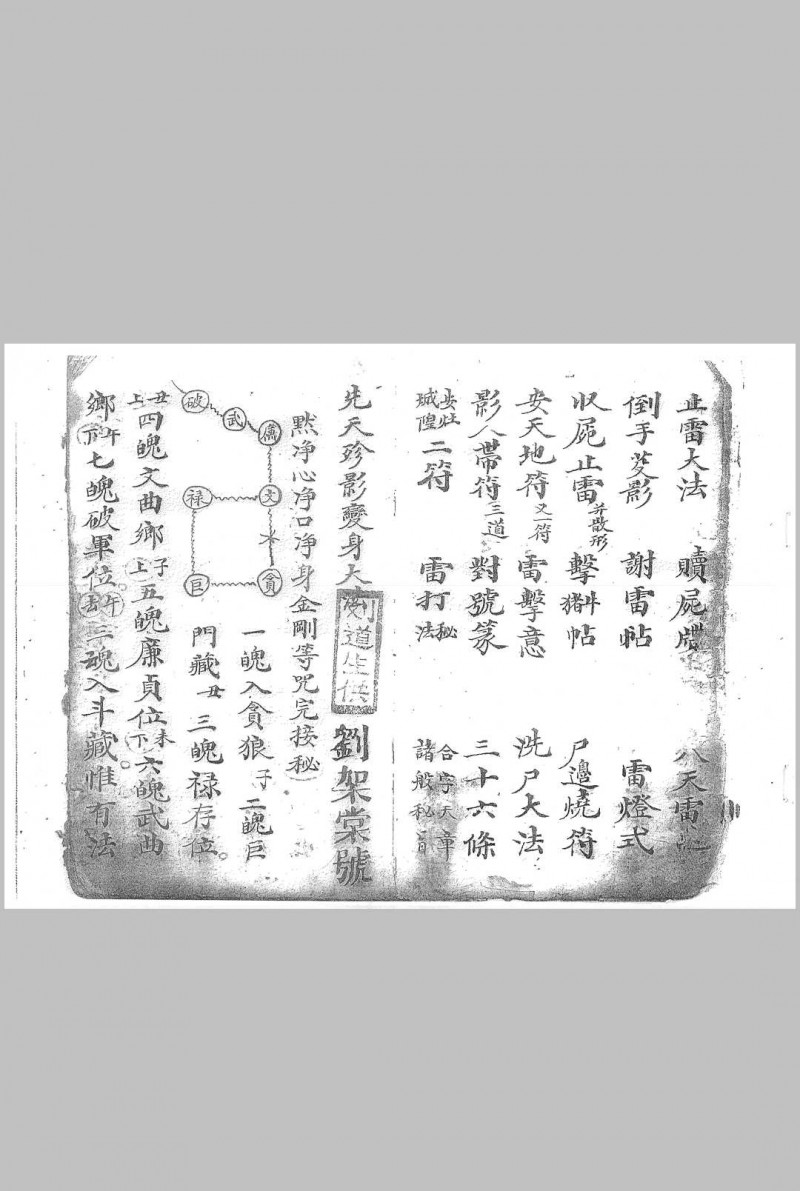 止雷大法　贖屍牒　八天雷
倒手芟影　謝雷帖　雷燈式
収屍止雷并散形　擊猪斗帖　尸邊燒符
安天地符又一符　雷擊意　洗尸大法
影人帶符三道　對號篆　三十六條
安灶城隍二符　雷打秘法　合字天章諸般秘旨
先天殄影變身大　劉道生供　劉架棠號
默净心净口净身金剛等咒完接秘
破　武　廉
禄　文
巨　貪
一魄入貪狼子二魄巨
門藏丑三魄禄存位。
丑上四魄文曲鄉子上五魄廉貞位未下六魄武曲
鄉午下七魄破軍位午去三魂入斗藏惟有法